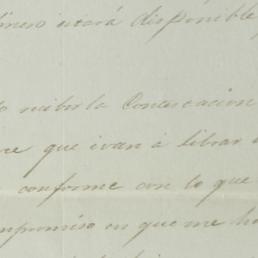 dinero estará disponible
do recibir la Contestacion
re que ivan á librar
conforme con lo que
mpromiso en que me ha